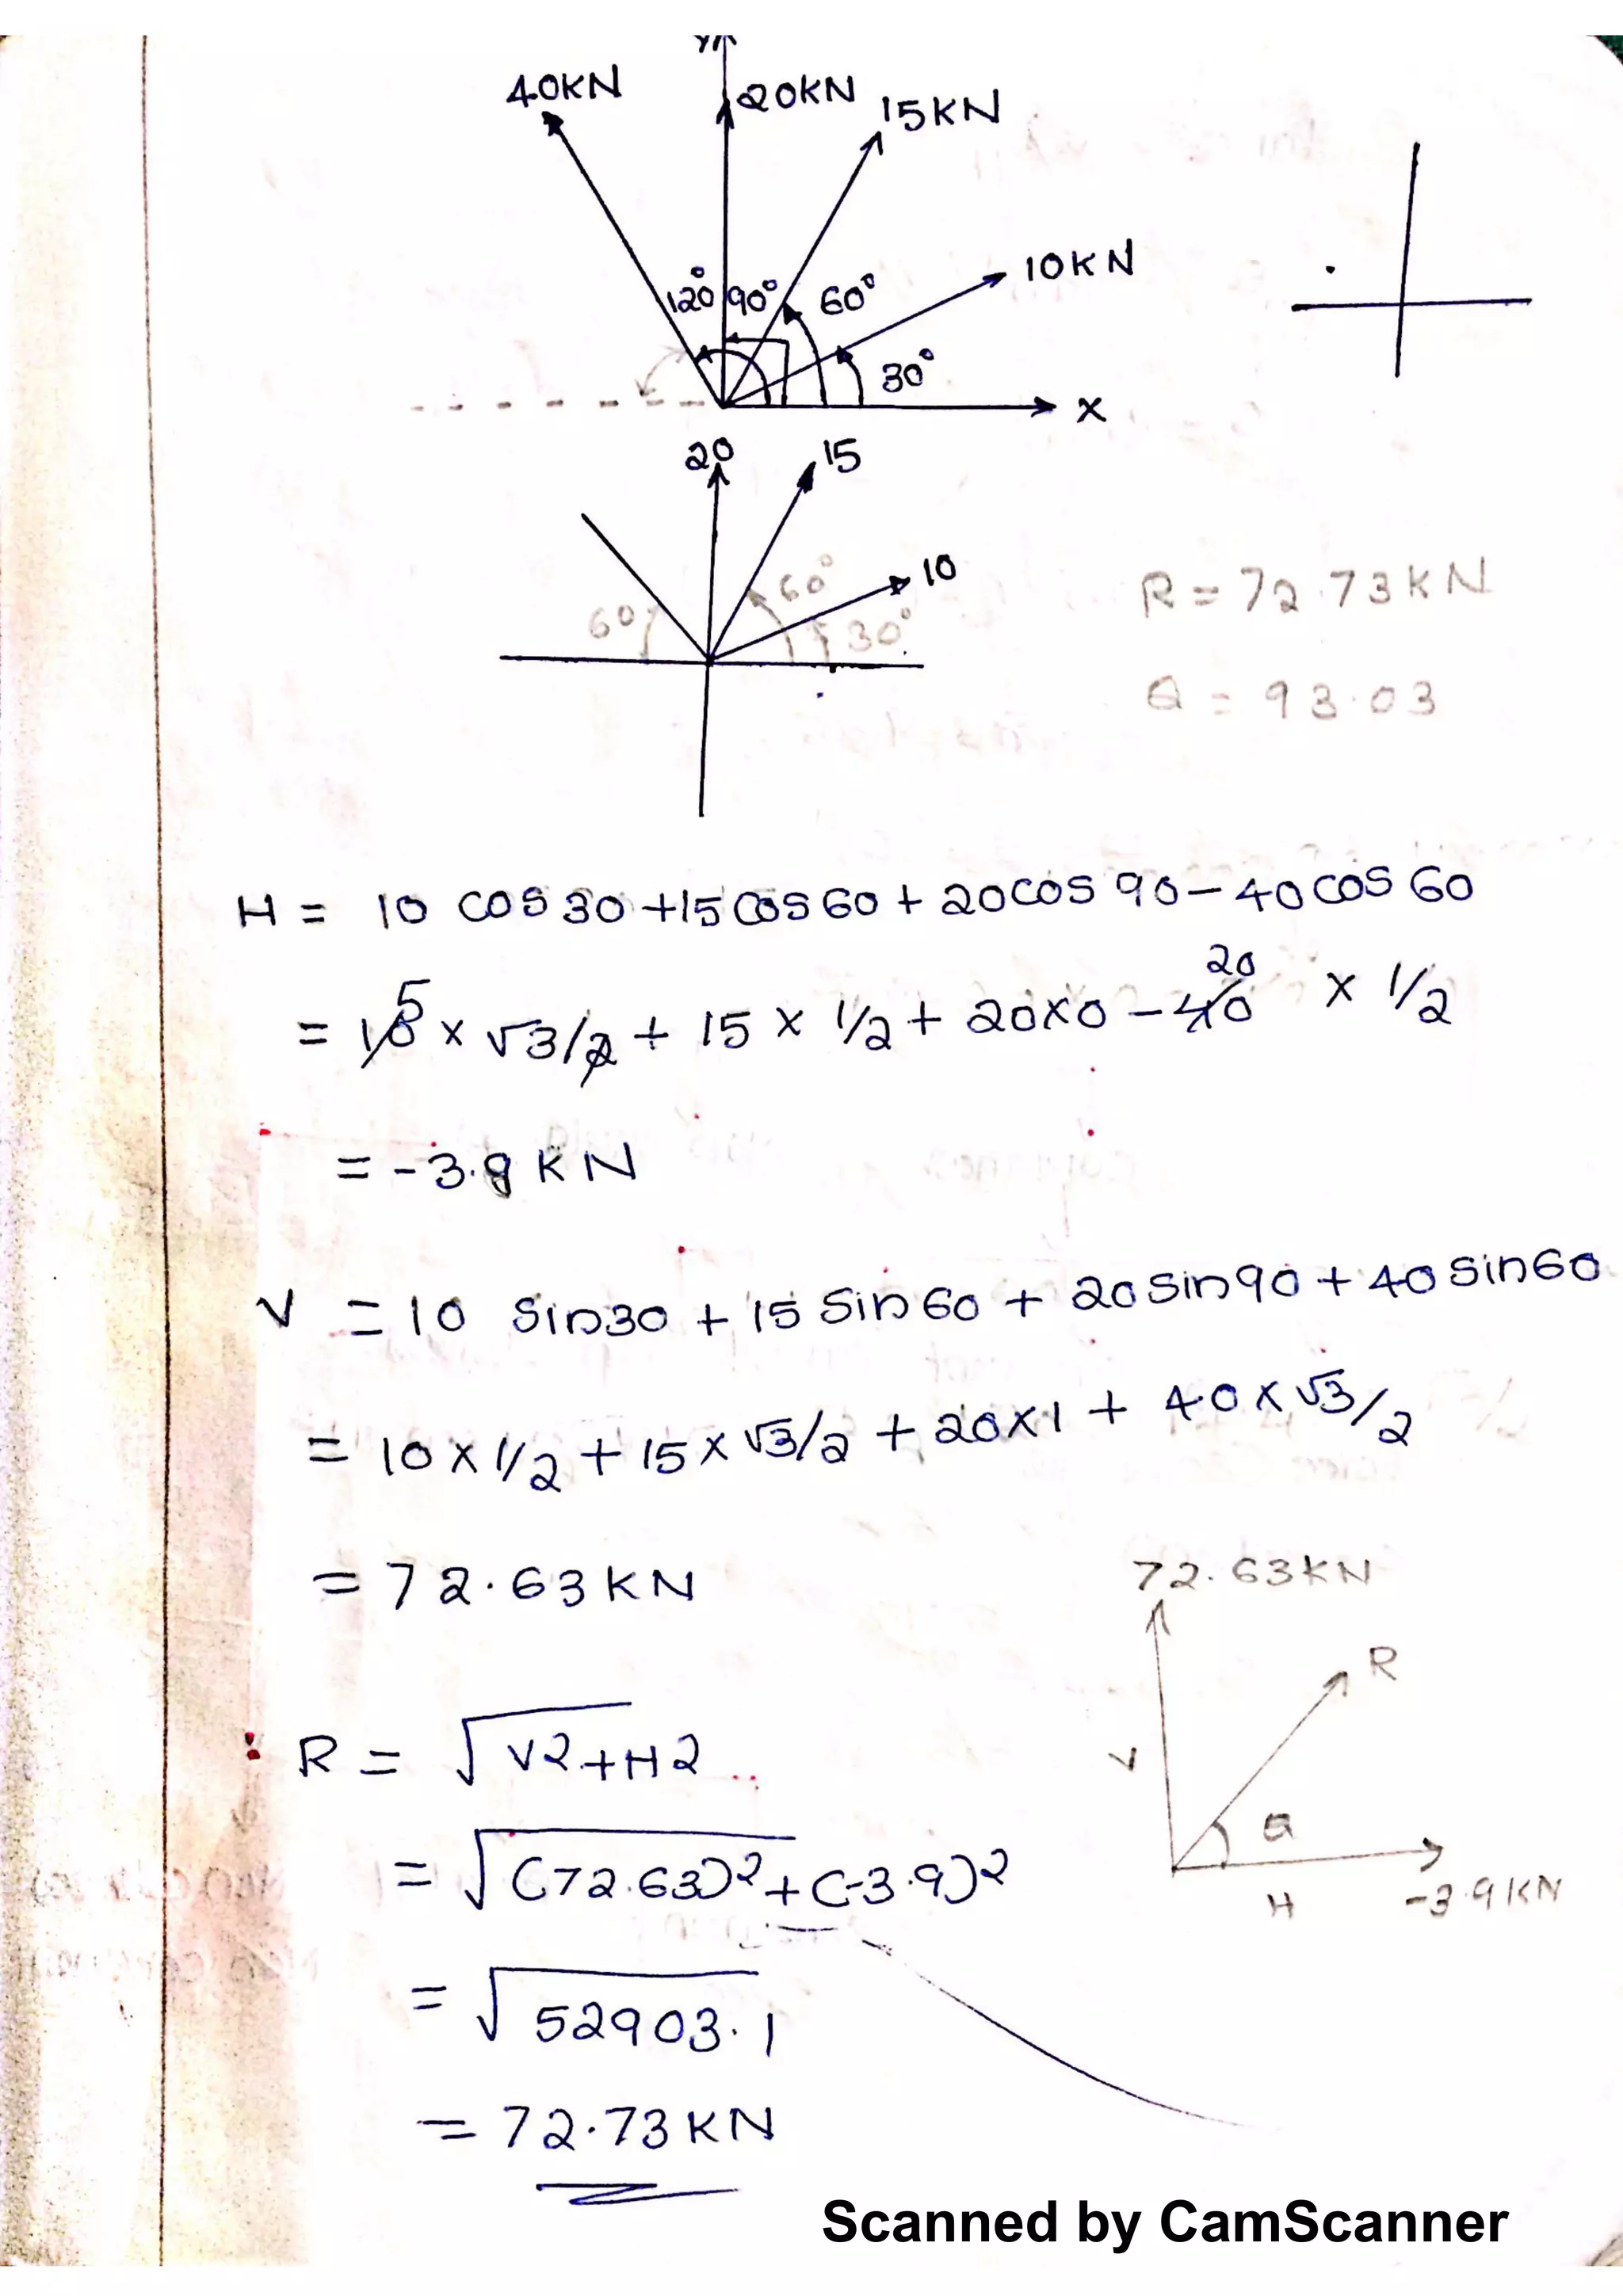 Y
40KN 20KN 15KN
10KN
120° 90° 60°
30°
X
20 15
10
60° 60° 30°
R = 72.73KN
θ = 93.03
H = 10 cos 30 + 15 cos 60 + 20 cos 90 - 40 cos 60
5 20
= 10 x √3/2 + 15 x 1/2 + 20x0 - 40 x 1/2
= -3.9 KN
V = 10 sin30 + 15 sin 60 + 20 sin90 + 40 sin60
= 10 x 1/2 + 15 x √3/2 + 20x1 + 40 x √3/2
= 72.63KN
72.63KN
R
V
θ
H -3.9KN
R = √V2+H2
= √(72.63)2+(-3.9)2
= √52903.1
= 72.73KN
Scanned by CamScanner